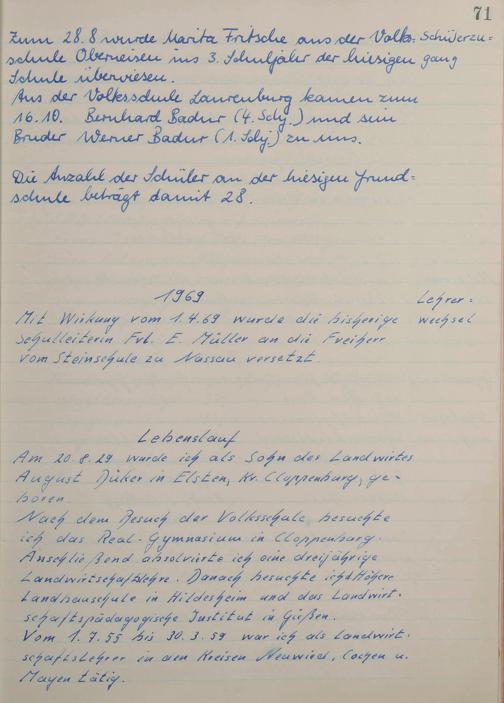 71
Zum 28.8 wurde Marita Fritsche aus der Volks- Schülerzu=
schule Oberneisen ins 3. Schuljahr der hiesigen gang
Schule überwiesen.
Aus der Volksschule Laurenburg kamen zum
16.10. Bernhard Badur (4. Schj.) und sein
Bruder Werner Badur (1. Schj.) zu uns.
Die Anzahl der Schüler an der hiesigen Grund=
schule beträgt damit 28.
1969 Lehrer=
Mit Wirkung vom 1.4.69 wurde die bisherige wechsel
Schulleiterin Frl. E. Müller an die Freiherr
vom Steinschule zu Nassau versetzt
Lebenslauf
Am 20.8.29 wurde ich als Sohn des Landwirtes
August Düker in Elsten, Kr. Cloppenburg, ge-
boren
Nach dem Besuch der Volksschule besuchte
ich das Real-Gymnasium in Cloppenburg.
Anschließend absolvierte ich eine dreijährige
Landwirtschaftslehre. Danach besuchte ich d. Höhere
Landbauschule in Hildesheim und das Landwirt-
schaftspädagogische Institut in Gießen.
Vom 1.7.55 bis 30.3.59 war ich als Landwirt-
schaftslehrer in den Kreisen Neuwied, Cochem u.
Mayen tätig.